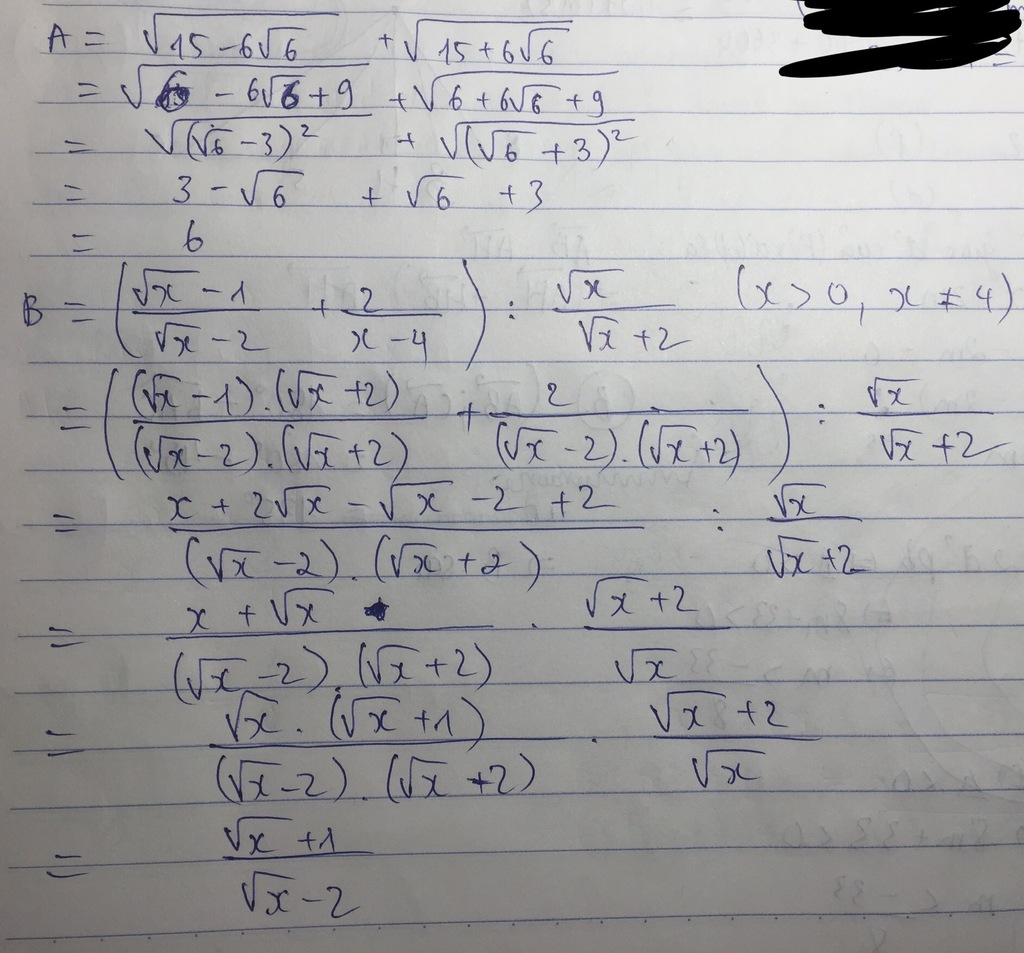 A = √(15 - 6√6) + √(15 + 6√6)
= √(6 - 6√6 + 9) + √(6 + 6√6 + 9)
= √((√6 - 3)²) + √((√6 + 3)²)
= 3 - √6 + √6 + 3
= 6
B = ((√x - 1)/(√x - 2) + 2/(x - 4)) : √x/(√x + 2) (x > 0, x ≠ 4)
= (((√x - 1).(√x + 2))/((√x - 2).(√x + 2)) + 2/((√x - 2).(√x + 2))) : √x/(√x + 2)
= (x + 2√x - √x - 2 + 2)/((√x - 2).(√x + 2)) : √x/(√x + 2)
= (x + √x)/((√x - 2).(√x + 2)) . (√x + 2)/√x
= (√x.(√x + 1))/((√x - 2).(√x + 2)) . (√x + 2)/√x
= (√x + 1)/(√x - 2)